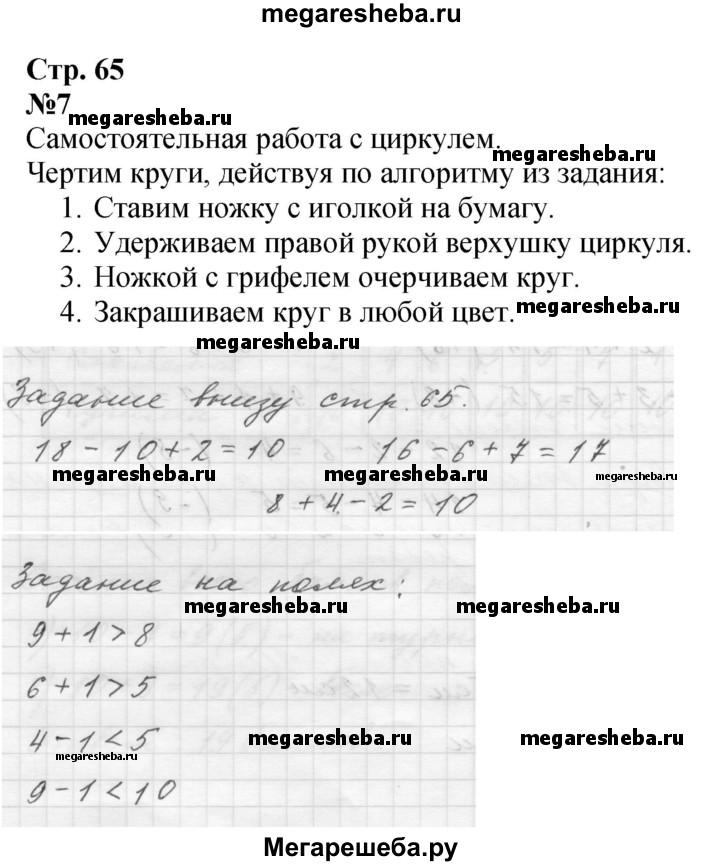 megaresheba.ru
Стр. 65
№7
megaresheba.ru
Самостоятельная работа с циркулем.
megaresheba.ru
Чертим круги, действуя по алгоритму из задания:
1. Ставим ножку с иголкой на бумагу.
2. Удерживаем правой рукой верхушку циркуля.
3. Ножкой с грифелем очерчиваем круг.
4. Закрашиваем круг в любой цвет.
megaresheba.ru
megaresheba.ru
Задание внизу стр. 65.
18 - 10 + 2 = 10 16 - 6 + 7 = 17
megaresheba.ru megaresheba.ru megaresheba.ru
8 + 4 - 2 = 10
Задание на полях:
megaresheba.ru megaresheba.ru
9 + 1 > 8
6 + 1 > 5
4 - 1 < 5
megaresheba.ru megaresheba.ru megaresheba.ru
9 - 1 < 10
Мегарешеба.ру